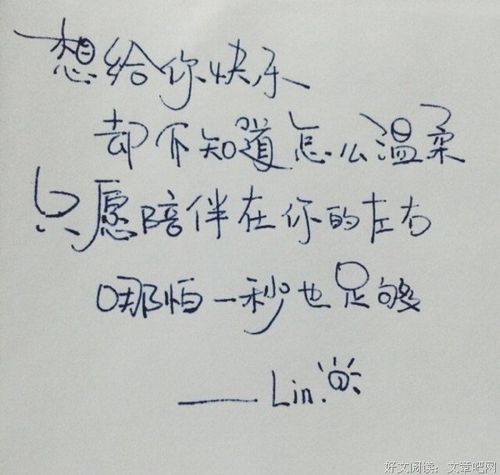 想给你快乐
却不知道怎么温柔
只愿陪伴在你的左右
哪怕一秒也足够
——Lin.
好文阅读：文章吧网